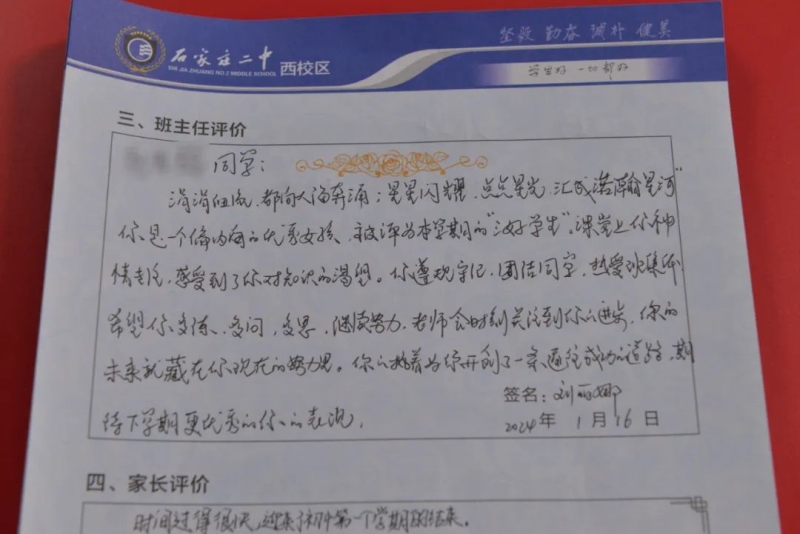 坚毅 勤奋 诚朴 健美
石家庄二中
SHI JIA ZHUANG NO.2 MIDDLE SCHOOL
西校区
学生好 一切都好
三、班主任评价
同学：
涓涓细流，都向大海奔涌；星星闪耀，点点星光，汇成浩瀚星河
你是一个偏内向的优秀女孩，被评为本学期的“三好学生”。课堂上你神
情专注，感受到了你对知识的渴望。你遵规守纪，团结同学，热爱班集体
希望你多练、多问，多思，继续努力，老师会时刻关注到你的进步，你的
未来就藏在你现在的努力里。你的执着为你开创了一条通往成功的道路，期
待下学期更优秀的你的表现。
签名：刘丽娜
2024年 1月16日
四、家长评价
时间过得很快，迎来了初中第一个学期的结束。